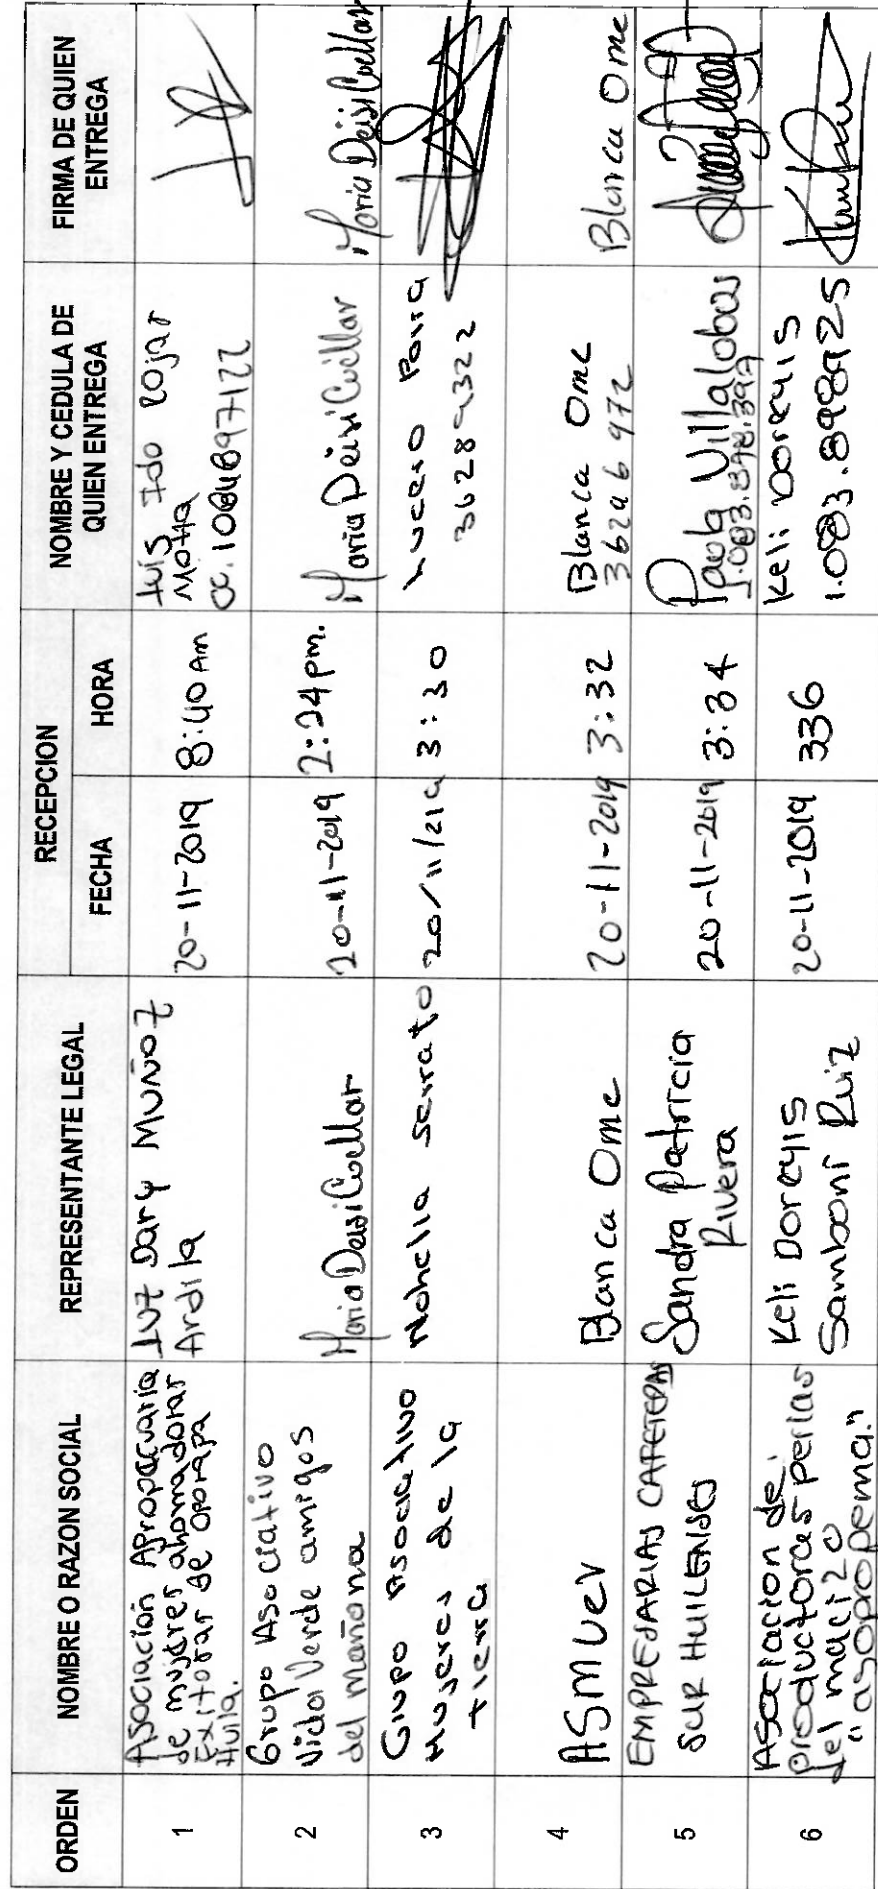 ORDEN
NOMBRE O RAZON SOCIAL
REPRESENTANTE LEGAL
RECEPCION
FECHA
HORA
NOMBRE Y CEDULA DE
QUIEN ENTREGA
FIRMA DE QUIEN
ENTREGA
1
Asociación Agropecuaria
de mujeres ahorradoras
Exitosas de oporapa
Huila.
Luz Dary Muñoz
Ardila
20-11-2019
8:40 Am
Luis Ido Rojas
Motta
cc. 1084897122
2
Grupo Asociativo
Vida Verde amigos
del mañana
Maria Deisi Cuellar
20-11-2019
2:24 pm.
Maria Deisi Cuéllar
Maria Deisi Cuellar
3
Grupo Asociativo
Mujeres de la
tierra
Nohelia Serrato
20/11/219
3:30
Lucero Parra
36289322
4
ASMUEV
Blanca Ome
20-11-2019
3:32
Blanca Ome
36296972
Blanca Ome
5
EMPRESARIAS CAFETERAS
SUR HUILENSES
Sandra Patricia
Rivera
20-11-2019
3:34
Paola Villalobos
1.083.898.397
6
Asociacion de
productoras perlas
del macizo
"asopropema."
Keli Doreyis
Samboni Ruiz
20-11-2019
336
Keli Doreyis
1.083.898925